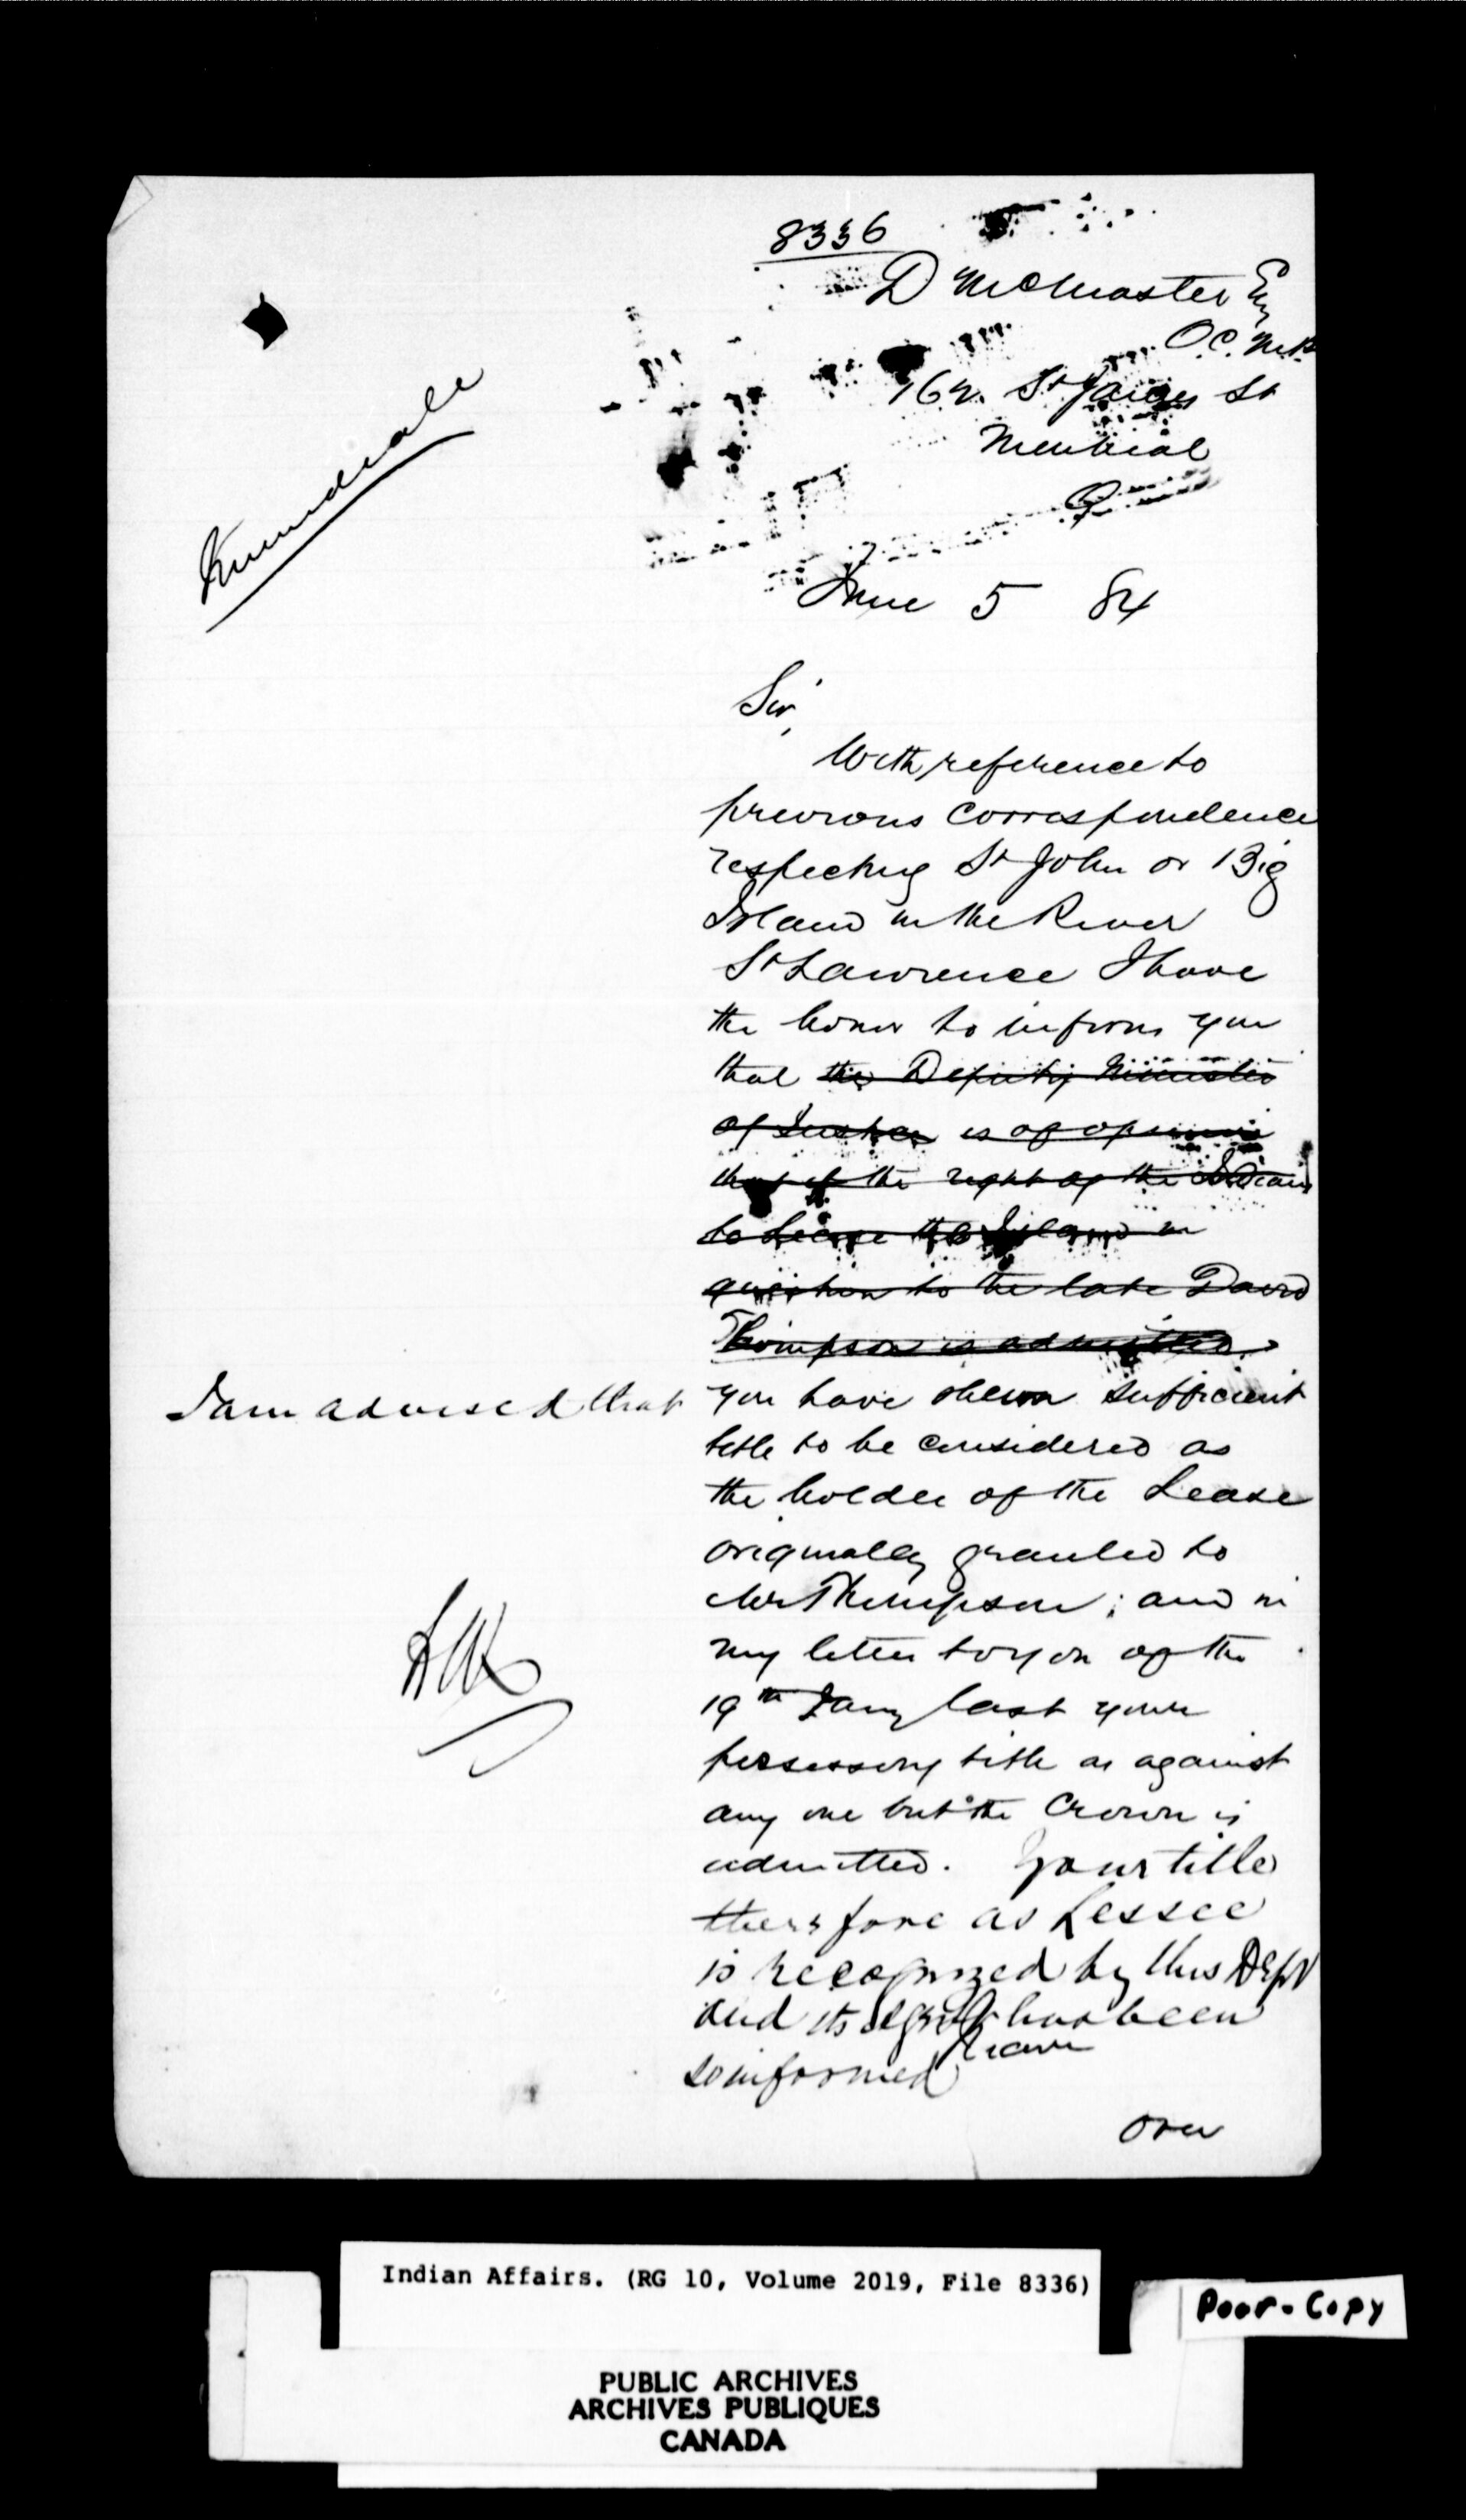 8336
D McMaster Esq
Q.C. M.P.
162 St James St
Montreal
Q
Immediate
June 5 84
Sir,
With reference to
previous correspondence
respecting St John or Big
Island in the River
St Lawrence I have
the honor to inform you
that the Deputy Minister
of Justice is of opinion
that if the right of the Indians
to Lease the Island in
question to the late David
Thompson is admitted
I am advised that you have shewn sufficient
title to be considered as
the holder of the Lease
originally granted to
Mr Thompson; and in
my letter to you of the
19th Jany last your
possessory title as against
any one but the Crown is
admitted. Your title
therefore as Lessee
is recognized by this Dept
and its agent has been
so informed
over
Indian Affairs. (RG 10, Volume 2019, File 8336)
Poor-Copy
PUBLIC ARCHIVES
ARCHIVES PUBLIQUES
CANADA